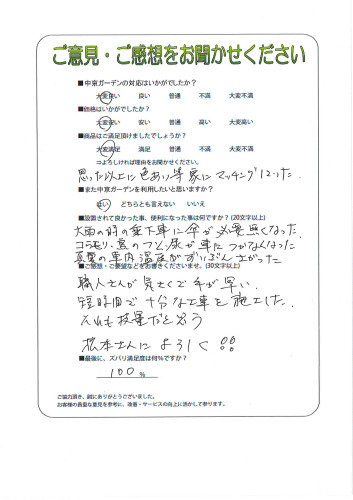 ご意見・ご感想をお聞かせください
■中京ガーデンの対応はいかがでしたか?
大変良い 良い 普通 不満 大変不満
■価格はいかがでしたか?
大変安い 安い 普通 高い 大変高い
■商品はご満足頂けましたでしょうか?
大変満足 満足 普通 不満 大変不満
→よろしければ理由をお聞かせください。
思った以上に色あい等家にマッチングになった.
■また中京ガーデンを利用したいと思いますか?
はい どちらとも言えない いいえ
■設置されて良かった事、便利になった事は何ですか?(20文字以上)
大雨の時の乗下車に傘が必要無くなった.
コウモリ、鳥のフン、尿が車につかなくなった
真夏の車内温度がずいぶん さがった
■ご感想・ご要望などをお書きくださいませ。(30文字以上)
職人さんが気さくで手が早い.
短時間で十分な工事を施工した.
これも技量だと思う
松本さんによろしく!!
■最後に、ズバリ満足度は何%ですか?
100 %
ご協力頂き、誠にありがとうございました。
お客様の貴重な意見を参考に、改善・サービスの向上に活かして参ります。